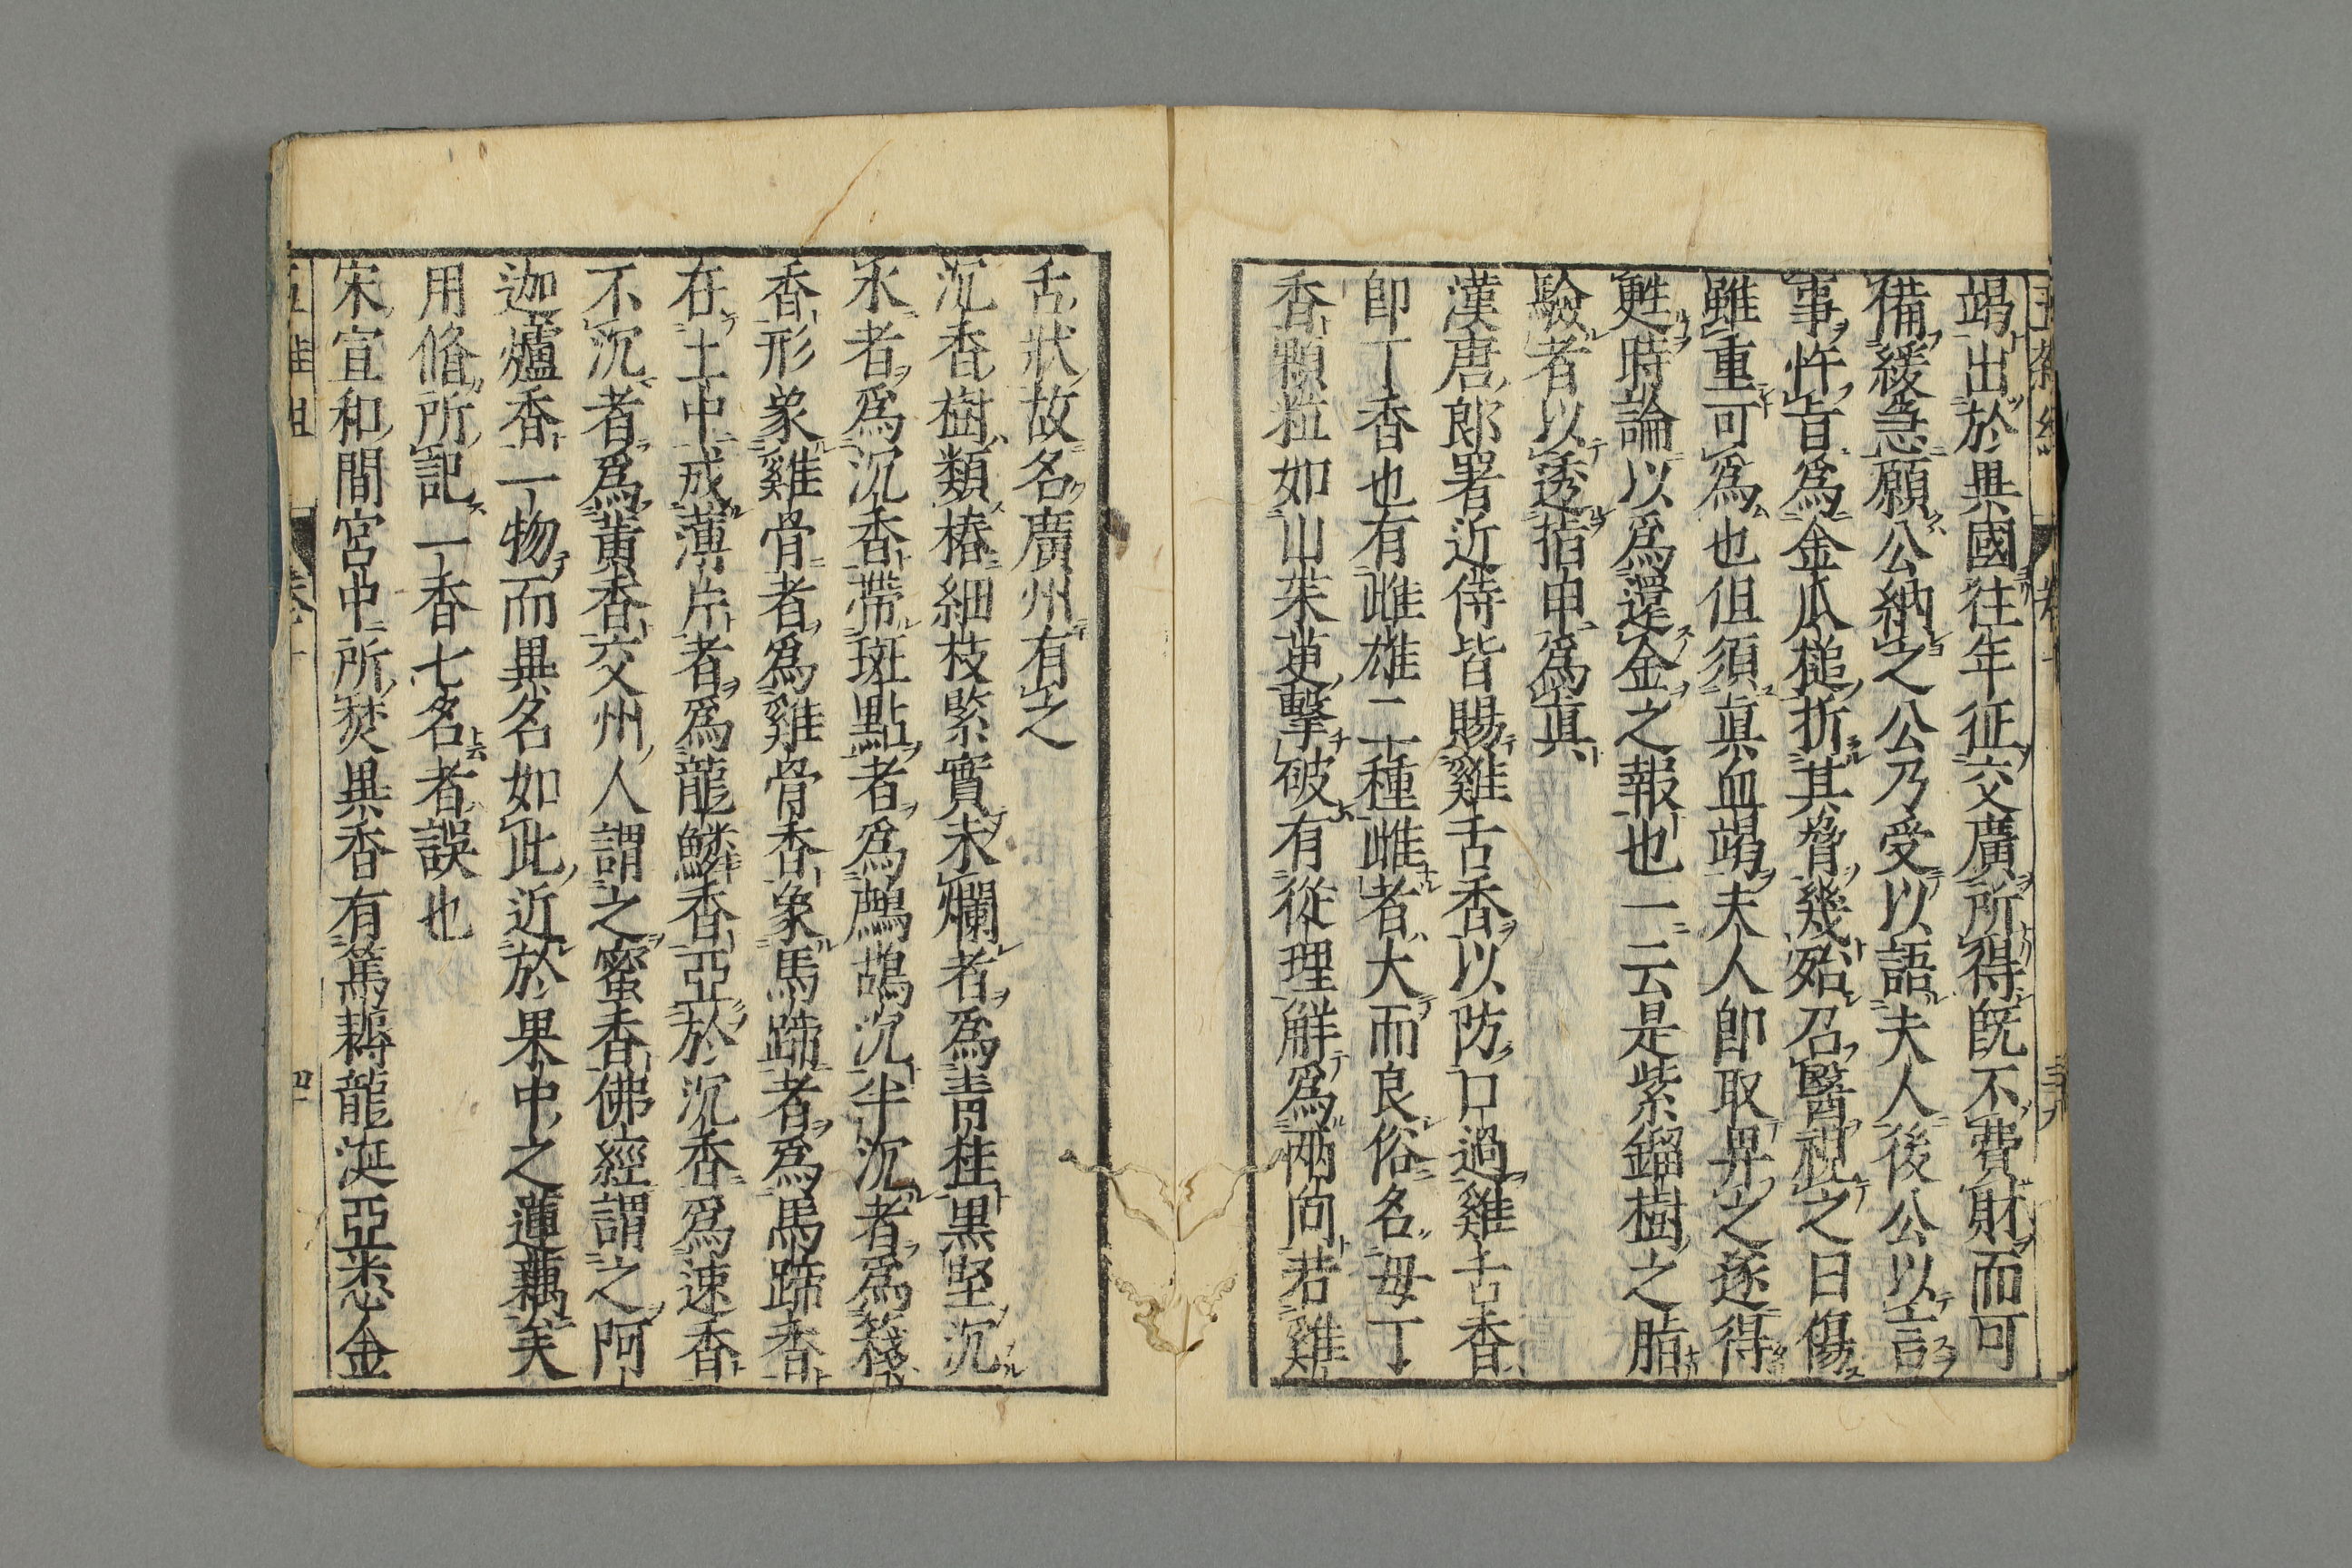 竭出於異國往年征交廣所得旣不費財而可
備緩急願公納之公乃受以語夫人後公以言
事忤旨爲金瓜槌折其脅幾殆召醫視之曰傷
雖重可爲也但須眞血竭夫人卽取畀之遂得
甦時論以爲還金之報也一云是紫鉚樹之脂
驗者以透指甲爲眞
漢唐郎署近侍皆賜雞舌香以防口過雞舌香
卽丁香也有雌雄二種雌者大而良俗名母丁
香顆粒如山茱萸擊破有從理解爲兩向若雞
舌狀故名廣州有之
沉香樹類椿細枝緊實未爛者爲靑桂黑堅沉
水者爲沉香帶斑點者爲鷓鴣沉半沉者爲篯
香形象雞骨者爲雞骨香象馬蹄者爲馬蹄香
在土中成薄片者爲龍鱗香亞於沉香爲速香
不沉者爲黃香交州人謂之蜜香佛經謂之阿
迦爐香一物而異名如此近於果中之蓮藕矣
用脩所記一香七名者誤也
宋宣和間宮中所焚異香有篤耨龍涎亞悉金
五雜組
卷十
四十